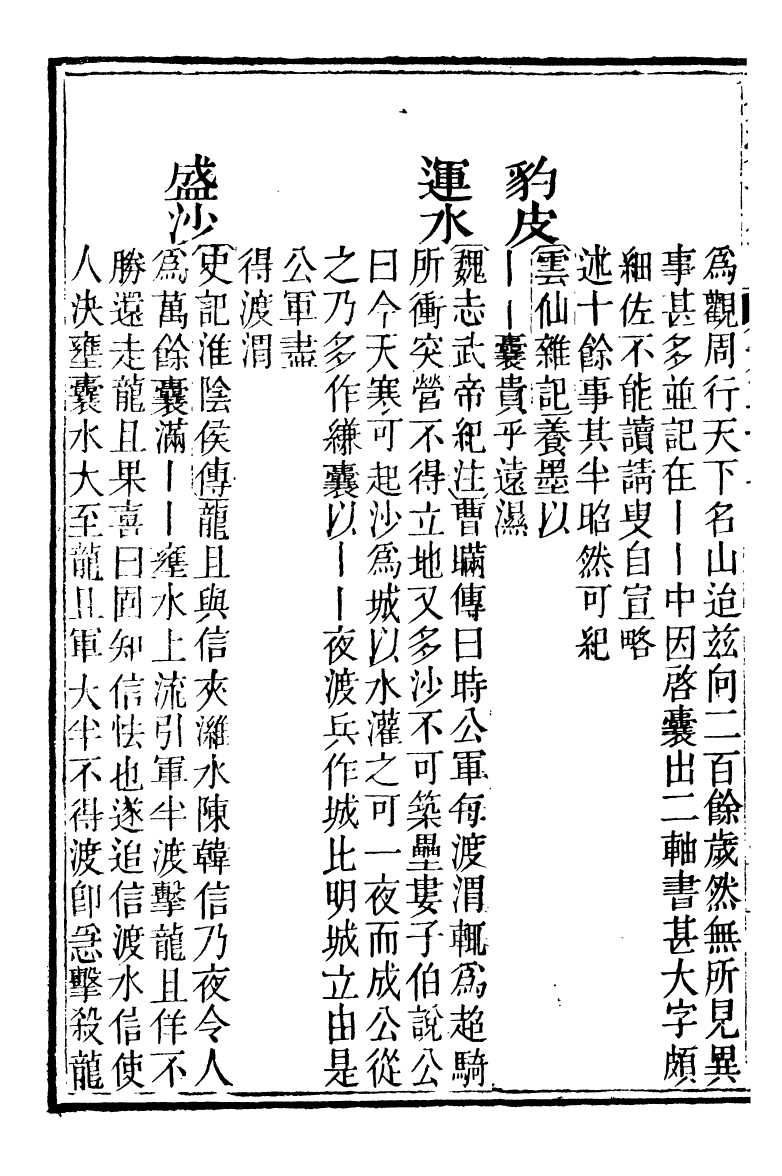 爲觀周行天下名山迨茲向二百餘歲然無所見異
事甚多並記在丨丨中因啓囊出二軸書甚大字頗
細佐不能讀請叟自宣略
述十餘事其半昭然可紀
豹皮
雲仙雜記養墨以
丨丨囊貴乎遠濕
運水
魏志武帝紀注曹瞞傳曰時公軍每渡渭輒爲超騎
所衝突營不得立地又多沙不可築壘婁子伯說公
曰今天寒可起沙爲城以水灌之可一夜而成公從
之乃多作縑囊以丨丨夜渡兵作城比明城立由是
公軍盡
得渡渭
盛沙
史記淮陰侯傳龍且與信夾濰水陳韓信乃夜令人
爲萬餘囊滿丨丨壅水上流引軍半渡擊龍且佯不
勝還走龍且果喜曰固知信怯也遂追信渡水信使
人決壅囊水大至龍且軍大半不得渡卽急擊殺龍